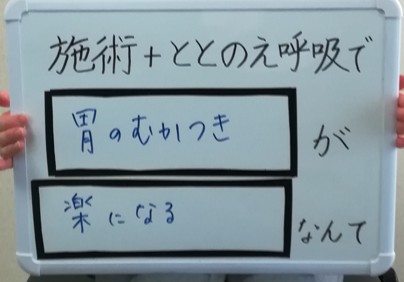 施術+ととのえ呼吸で
胃のむかつき が
楽になる なんて